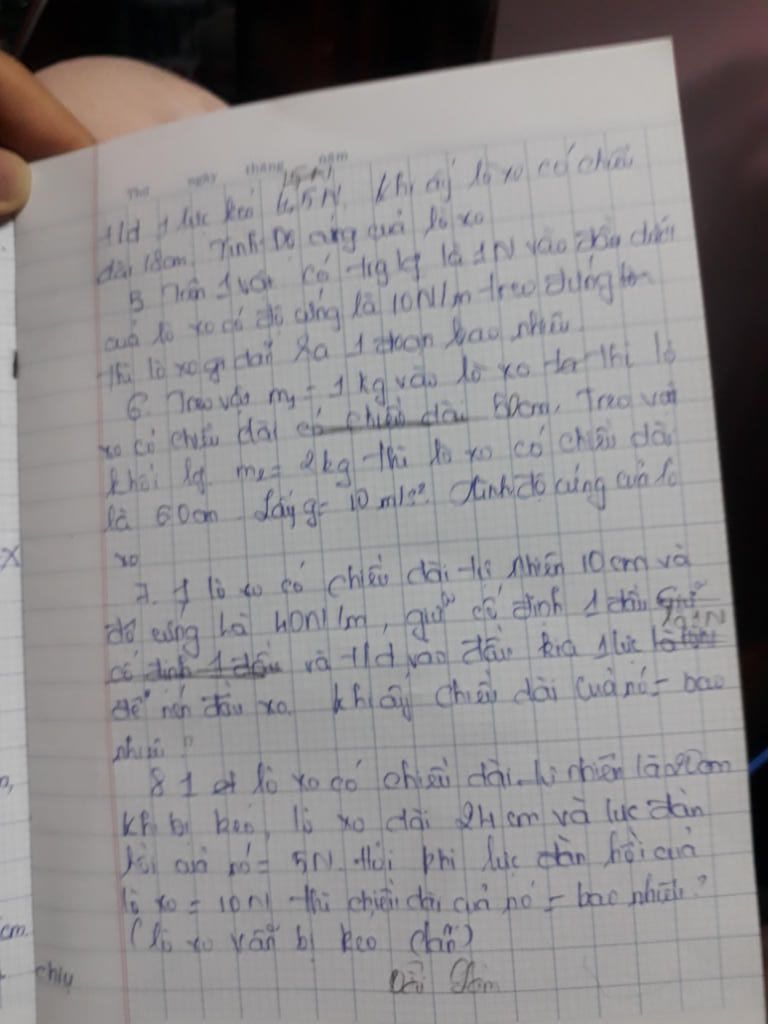 Thứ ngày tháng năm
t/d 1 lực kéo 4,5N. Khi ấy lò xo có chiều
dài 18cm. Tính Độ cứng quả lò xo
5 Treo 1 vật có trg lg là 1N vào đầu dưới
quả lò xo có độ cứng là 10N/m treo đứng
thì lò xo dãn ra 1 đoạn bao nhiêu.
6. Treo vật m₁ = 1 kg vào lò xo thì lò
xo có chiều dài có chiều dài 50cm. Treo vật
khối lg m₂ = 2kg thì lò xo có chiều dài
là 60cm. Lấy g = 10 m/s². Tính độ cứng của lò
xo
7. 1 lò xo có chiều dài tự nhiên 10cm và
độ cứng là 40N/m, giữ cố định 1 đầu
cố định 1 đầu và t/d vào đầu kia 1 lực là 1N
để nén đầu xo. khi ấy chiều dài của nó = bao
nhiêu?
8 1 lò xo có chiều dài tự nhiên là 20cm
khi bị kéo, lò xo dài 24cm và lực đàn
hồi của nó = 5N. Hỏi khi lực đàn hồi của
lò xo = 10N thì chiều dài của nó = bao nhiêu?
(lò xo vẫn bị kéo dãn)
chịu
cm